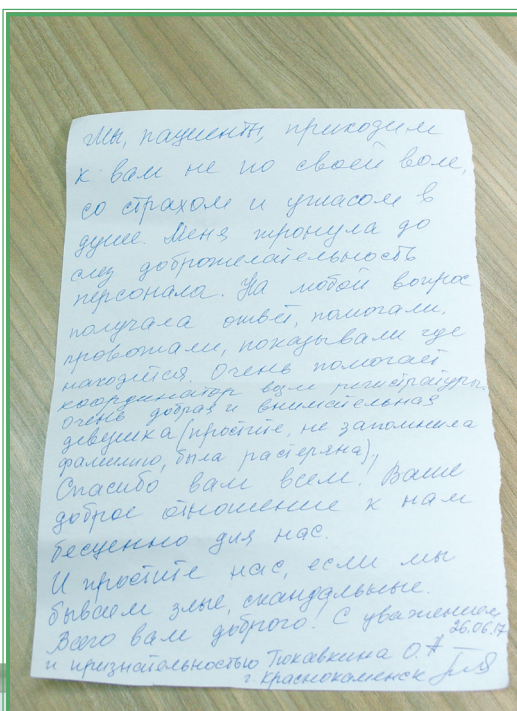 Мы, пациенты, приходим
к вам не по своей воле,
со страхом и ужасом в
душе. Меня тронула до
слез доброжелательность
персонала. На любой вопрос
получала ответ, помогали,
провожали, показывали где
находится. Очень помогает
координатор возле регистратуры,
очень добрая и внимательная
девушка (простите, не запомнила
фамилию, была растеряна),
Спасибо вам всем! Ваше
доброе отношение к нам
бесценно для нас.
И простите нас, если мы
бываем злые, скандальные.
Всего вам доброго! С уважением
26.06.17
и признательностью Тюкавкина О.А
г. Краснокаменск